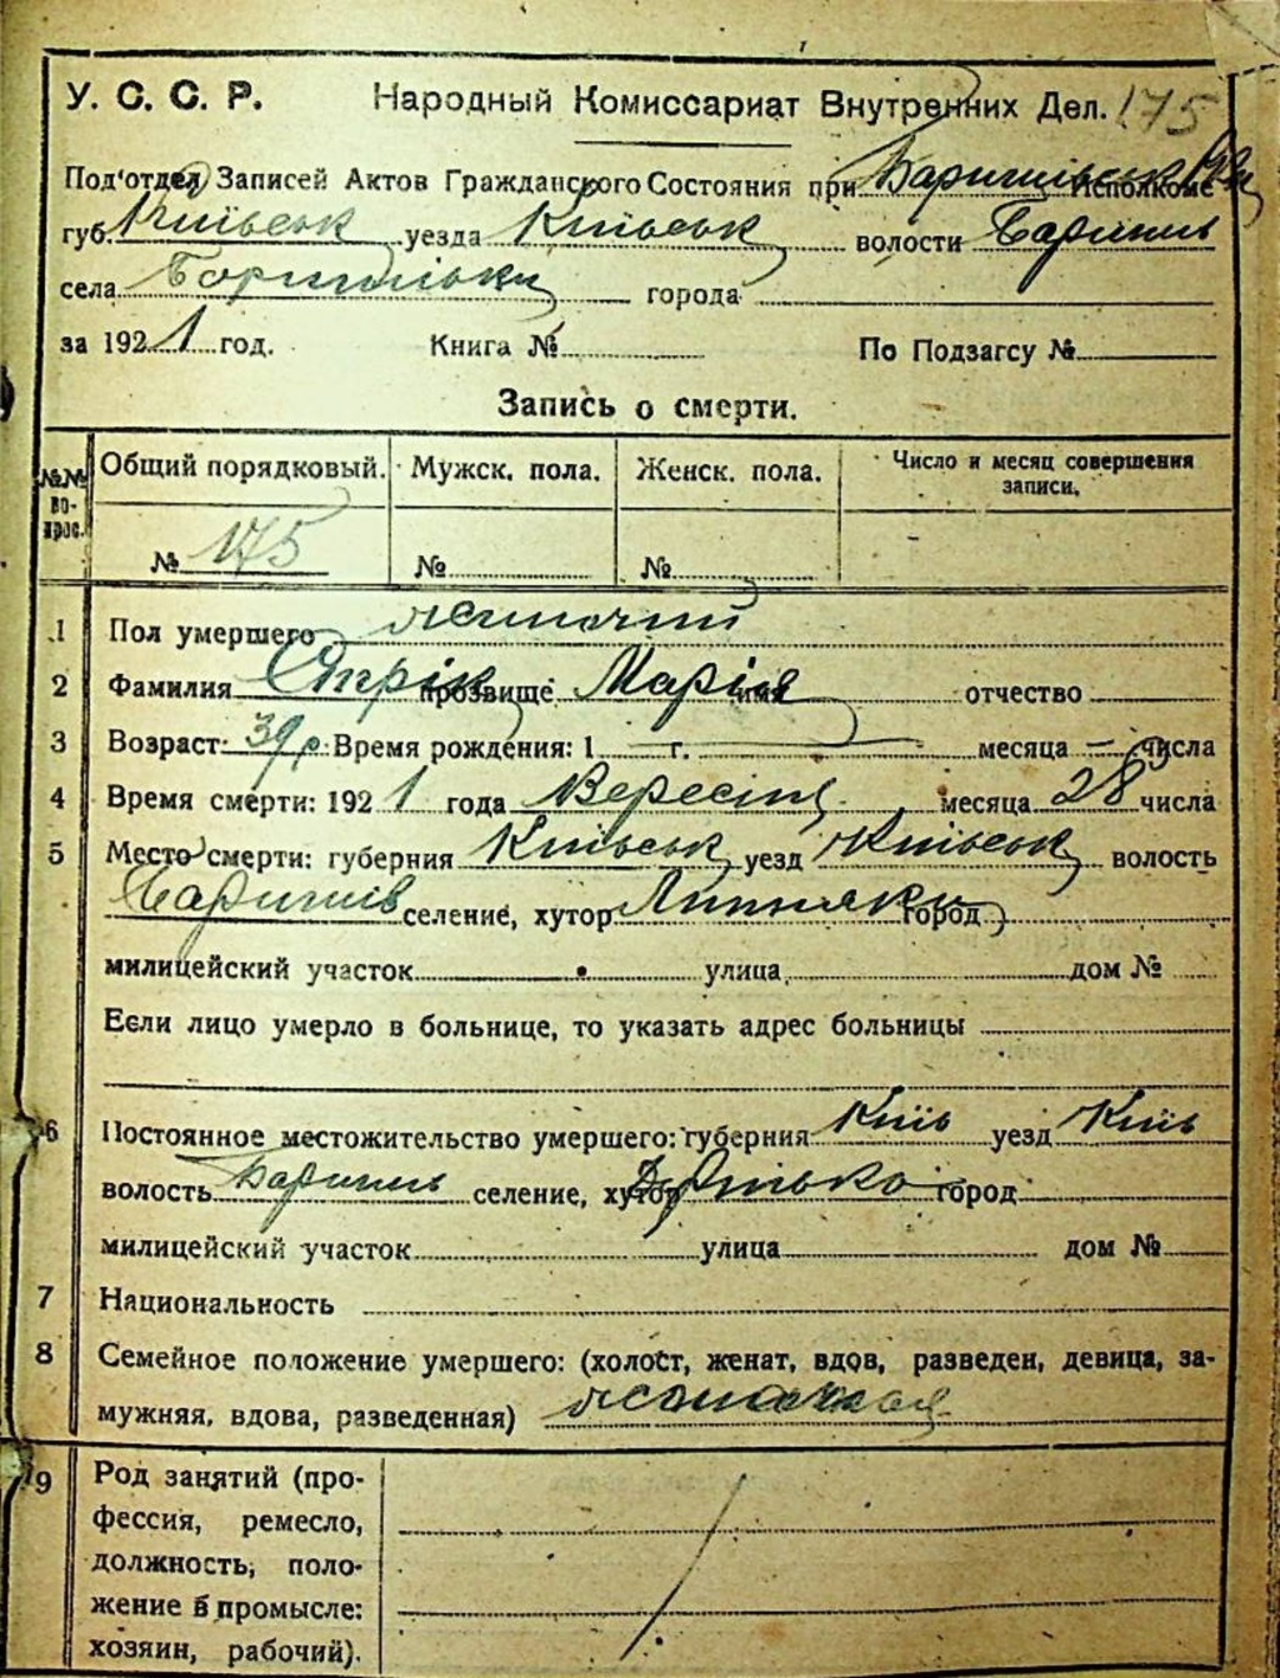 У. С. С. Р. Народный Комиссариат Внутренних Дел. 175
Под'отдел Записей Актов Гражданского Состояния при Исполкоме
губ. Київськ уезда Київськ волости Баришь
села города
за 1921 год. Книга № По Подзагсу №
Запись о смерти.
№№ во-прос. Общий порядковый. Мужск. пола. Женск. пола. Число и месяц совершения записи.
№ 175 № №
1 Пол умершего жиночий
2 Фамилия прозвище Марія имя отчество
3 Возраст: 39 р. Время рождения: 1 — г. — месяца — числа
4 Время смерти: 1921 года Вересня месяца 28 числа
5 Место смерти: губерния Київськ уезд Київськ волость
Баришів селение, хутор Липняки город
милицейский участок улица дом №
Если лицо умерло в больнице, то указать адрес больницы
6 Постоянное местожительство умершего: губерния Київ уезд Київ
волость Баришь селение, хутор город
милицейский участок улица дом №
7 Национальность
8 Семейное положение умершего: (холост, женат, вдов, разведен, девица, за-
мужняя, вдова, разведенная)
9 Род занятий (про-
фессия, ремесло,
должность, поло-
жение в промысле:
хозяин, рабочий).